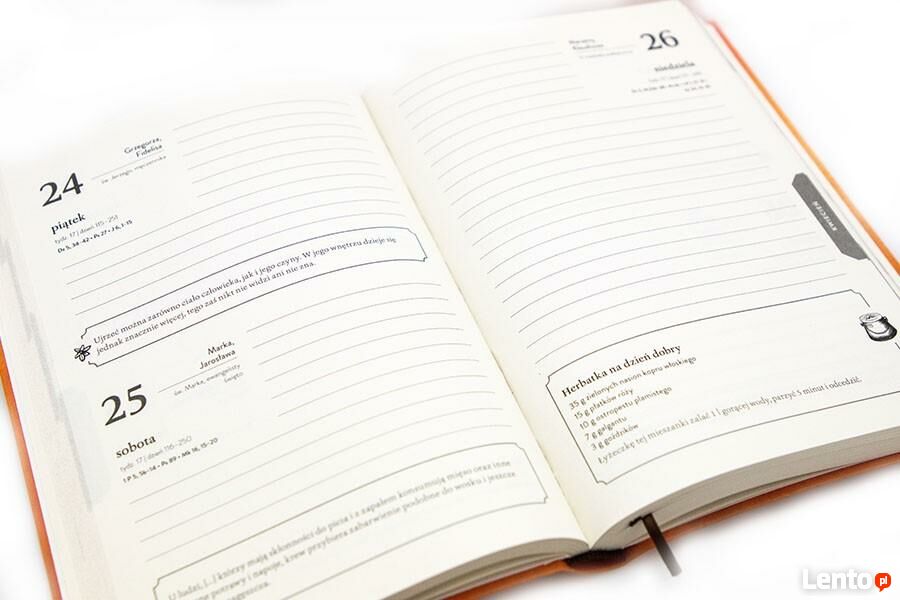 24
Grzegorza,
Fidelisa
św. Jerzego, męczennika
piątek
tydz. 17 | dzień 115–251
Dz 5, 34–42 • Ps 27 • J 6, 1–15
Ujrzeć można zarówno ciało człowieka, jak i jego czyny. W jego wnętrzu dzieje się
jednak znacznie więcej, tego zaś nikt nie widzi ani nie zna.
25
Marka,
Jarosława
św. Marka, ewangelisty
święto
sobota
tydz. 17 | dzień 116–250
1 P 5, 5b–14 • Ps 89 • Mk 16, 15–20
U ludzi, [...] którzy mają skłonności do picia i z zapałem konsumują mięso oraz inne
potrawy i napoje, krew przybiera zabarwienie podobne do wosku i jeszcze
26
niedziela
KWIECIEŃ
Herbatka na dzień dobry
35 g zielonych nasion kopru włoskiego
15 g płatków róży
10 g ostropestu plamistego
7 g galgantu
3 g goździków
Łyżeczkę tej mieszanki zalać 1 l gorącej wody, parzyć 5 minut i odcedzić.
Lento.pl